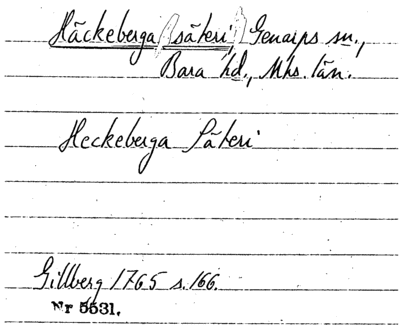 Häckeberga (säteri), Genarps sn.,
Bara hd., Mhs. län.
Heckeberga Säteri
Gillberg 1765 s. 166.
Nr 5531.